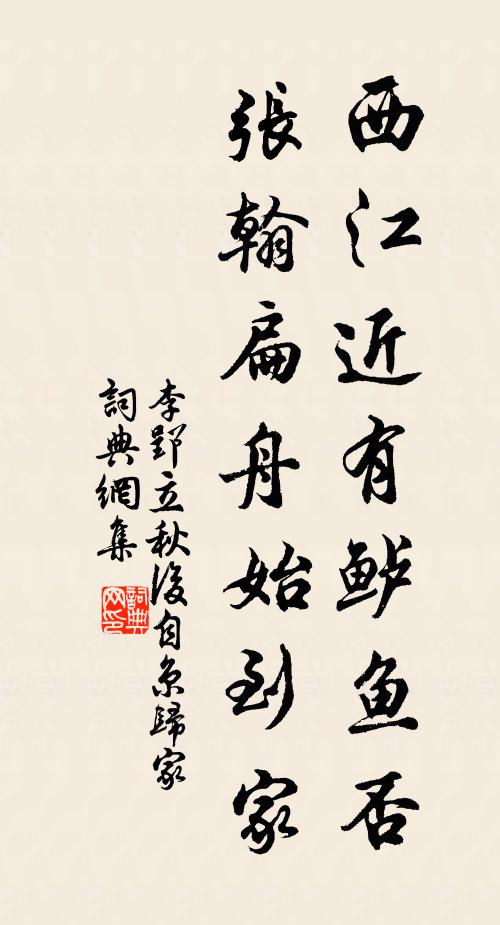 西江近有鲈鱼否
張翰扁舟始到家
李郢立秋後自京歸家
詞典網集
詞典
网印